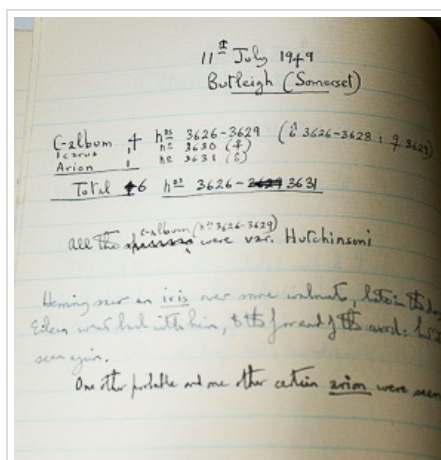 11th July 1949
Butleigh (Somerset)
C-album 4 nos 3626-3629 (♂ 3626-3628 : ♀ 3629)
Icarus 1 no 3630 (♀)
Arion 1 no 3631 (♂)
Total 6 nos 3626-3631
C-album (nos 3626-3629)
All the were var. Hutchinsoni
Heming saw an iris over some walnuts, late in the day
Eileen went back with him, to the far end of the wood:
seen again.
One other probable and one other certain arion were seen